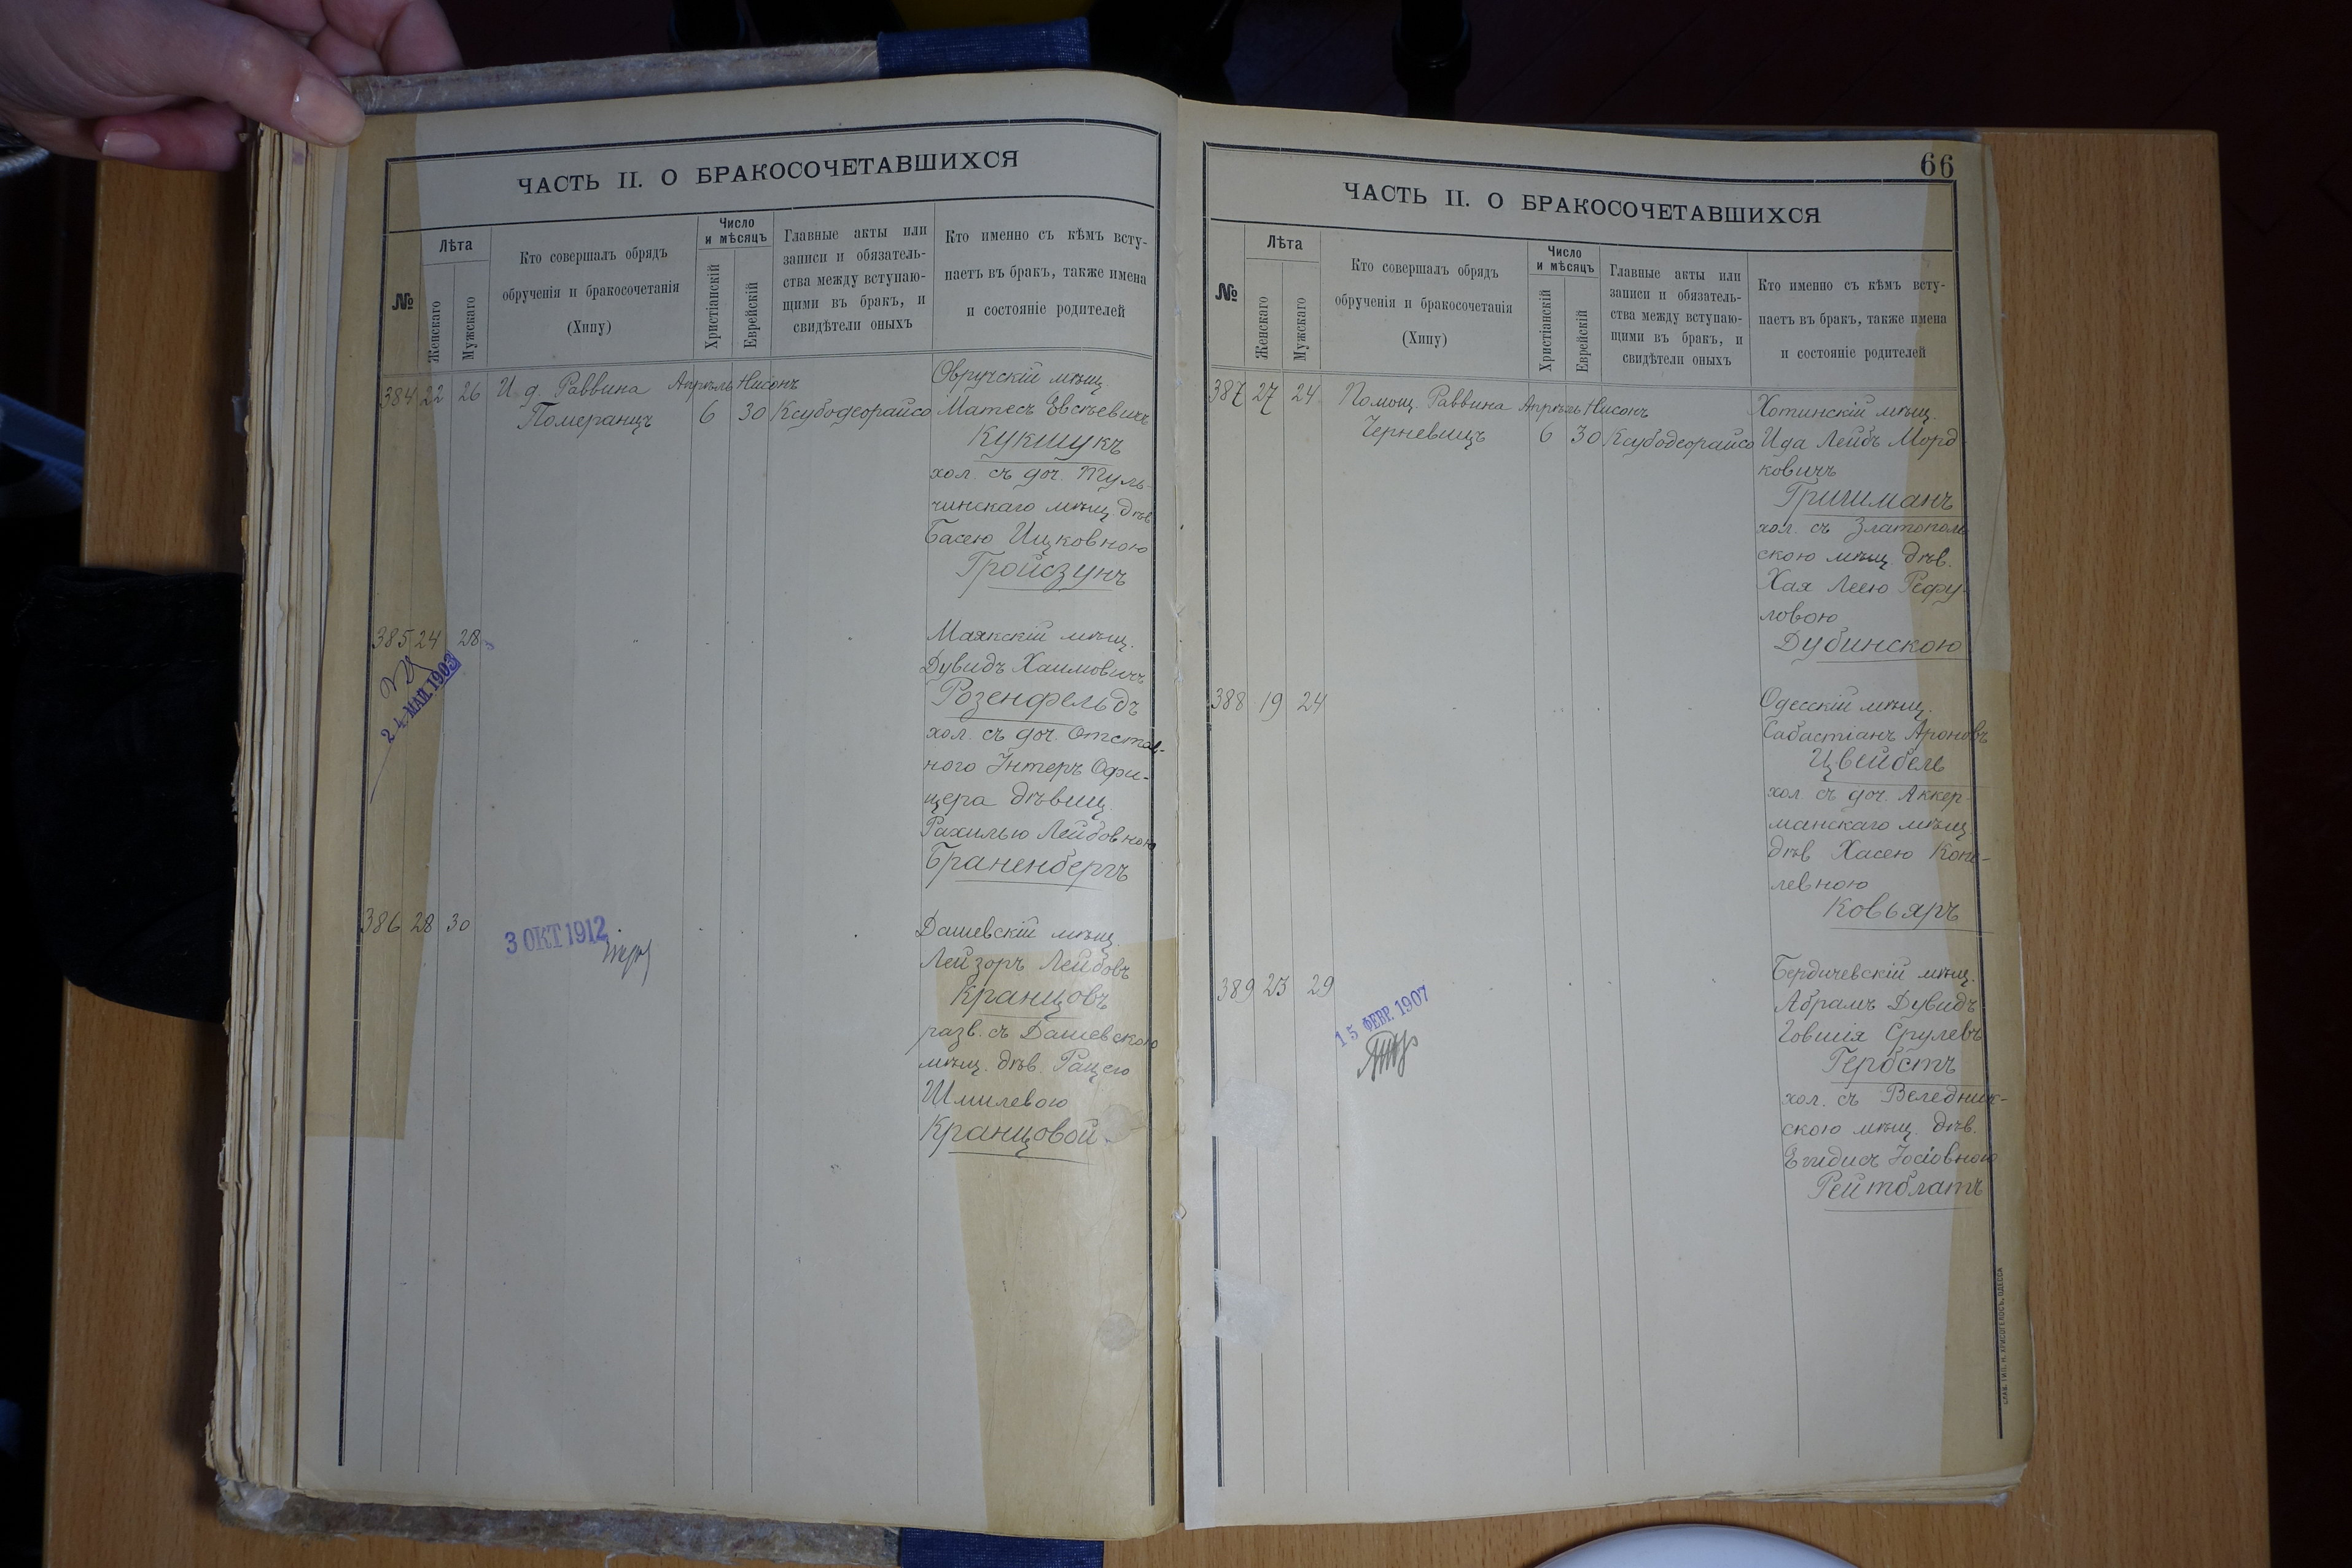 ЧАСТЬ II. О БРАКОСОЧЕТАВШИХСЯ
№
Лѣта
Женскаго
Мужскаго
Кто совершалъ обрядъ
обрученія и бракосочетанія
(Хипу)
Число
и мѣсяцъ
Христіанскій
Еврейскій
Главные акты или
записи и обязатель-
ства между вступаю-
щими въ бракъ, и
свидѣтели оныхъ
Кто именно съ кѣмъ всту-
паетъ въ бракъ, также имена
и состояніе родителей
384 22 26 И. д. Раввина Апрѣль Нисонъ Овручскій мѣщ.
Померанцъ 6 30 Ксубодеорайсо Матесъ Евсѣевичъ
Кукшукъ
хол. съ доч. Туль-
чинскаго мѣщ. дѣв.
Басею Ицковною
Гройсзунъ
385 24 28 Маякскій мѣщ.
24 МАЙ 1903
Дувидъ Хаимовичъ
Розенфельдъ
хол. съ доч. Отстав-
ного Унтеръ Офи-
цера дѣвиц.
Рахилью Лейбовною
Браненбергъ
386 28 30 Дашевскій мѣщ.
3 ОКТ 1912
Лейзоръ Лейбовъ
Кранцовъ
разв. съ Дашевскою
мѣщ. дѣв. Рацею
Шмилевою
Кранцовой
66
ЧАСТЬ II. О БРАКОСОЧЕТАВШИХСЯ
№
Лѣта
Женскаго
Мужскаго
Кто совершалъ обрядъ
обрученія и бракосочетанія
(Хипу)
Число
и мѣсяцъ
Христіанскій
Еврейскій
Главные акты или
записи и обязатель-
ства между вступаю-
щими въ бракъ, и
свидѣтели оныхъ
Кто именно съ кѣмъ всту-
паетъ въ бракъ, также имена
и состояніе родителей
387 27 24 Помощ. Раввина Апрѣль Нисонъ Хотинскій мѣщ.
Черневицъ 6 30 Ксубодеорайсо Ида Лейбъ Морд-
ковичъ
Гришманъ
хол. съ Златополь
скою мѣщ. дѣв.
Хая Леею Рефу-
ловою
Дубинскою
388 19 24 Одесскій мѣщ.
Сабастіанъ Ароновъ
Цвейбель
хол. съ доч. Аккер-
манскаго мѣщ.
дѣв. Хасею Копе-
левною
Ковьяръ
389 23 29 Бердичевскій мѣщ.
15 ФЕВР. 1907
Абрамъ Дувидъ
Говшія Срулевъ
Гербстъ
хол. съ Веледник-
скою мѣщ. дѣв.
Іосіовною
Рейтблатъ
СЛАВ. ТИП. Н. ХРИСОГЕЛОСЪ, ОДЕССА